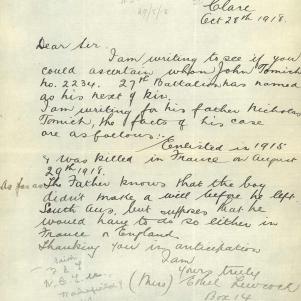 Clare
Oct 28th 1918.
Dear Sir.
I am writing to see if you
could ascertain whom John Tomich
no. 2234. 27th Battalion has named
as his next of kin.
I am writing for his father Nicholas
Tomich, the facts of his case
are as follows:-
Enlisted in 1915
& was killed in France on August
29th 1918.
As far as The Father knows that the boy
didn't make a will before he left
South Aus, but supposes that he
would have to do so either in
France or England.
Thanking you in anticipation
I am
Yours truly
(Miss) Ethel
Box 14